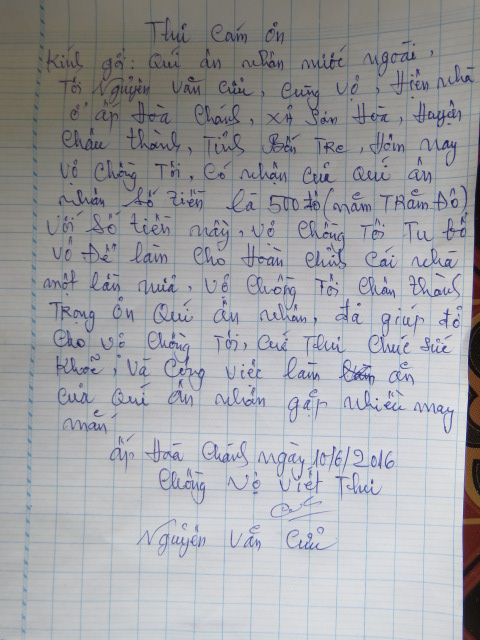 Thư Cám ơn
Kính gởi: Quí ân nhân nước ngoài,
Tôi Nguyễn Văn Cửu, cùng vợ, Hiện nhà
ở ấp Hoà Chánh, xã Sơn Hoà, Huyện
Châu thành, Tỉnh Bến Tre, Hôm nay
vợ chồng Tôi, Có nhận của Quí ân
nhân số tiền là 500 đô (năm Trăm Đô)
với số tiền này, vợ chồng Tôi Tu bổ
vô Để làm cho Hoàn chỉnh cái nhà
một lần nữa, vợ chồng Tôi chân thành
Trọng ơn Quí ân nhân, đã giúp đở
cho vợ chồng Tôi, cuối Thư chúc sức
khoẻ, và công việc làm ăn
của quí ân nhân gặp nhiều may
mắn
ấp Hoà Chánh ngày 10/6/2016
Chồng vợ viết Thư
Nguyễn Văn Cửu